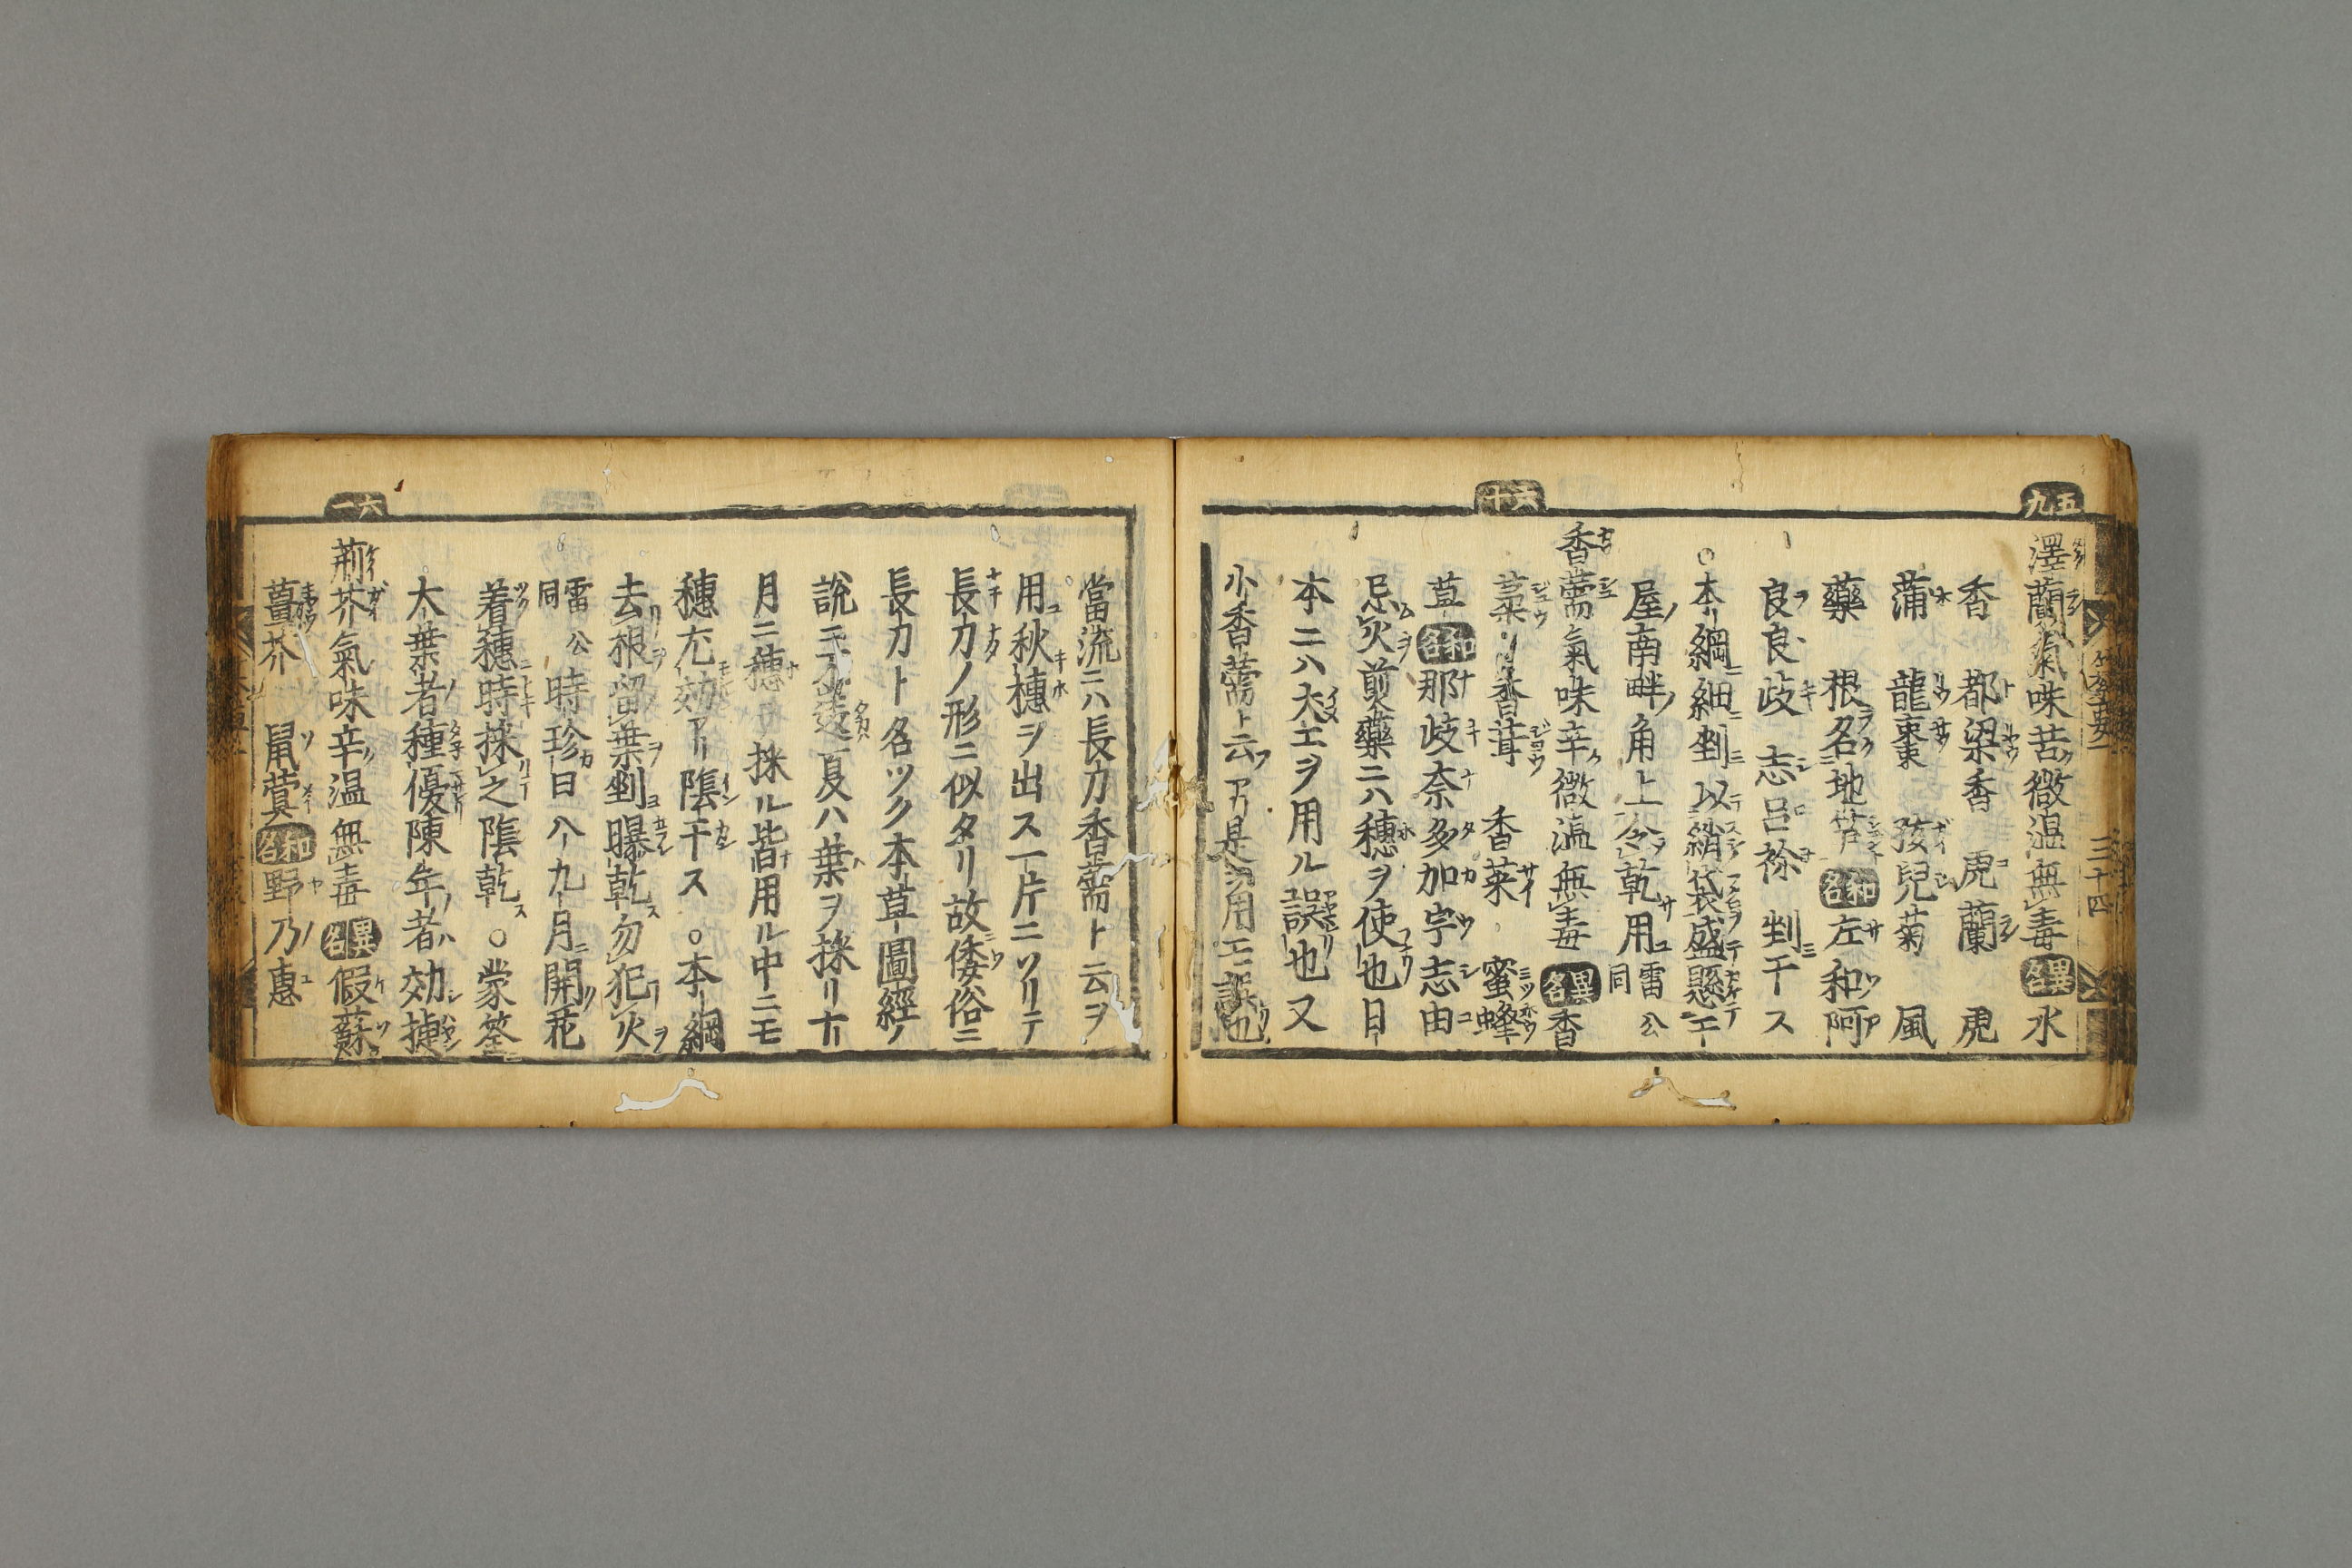 五九
澤蘭氣味苦微温無毒 異名 水
香 都梁香 虎蘭 虎
蒲 龍棗 孩兒菊 風
藥 根名地笋 和名 左和阿
良良岐 志呂祢 剉干ス
○本綱細剉以絹袋盛懸エ
屋南畔角上令乾用 雷公同
六十
香薷氣味辛微温無毒 異名 香
葇 香茸 香菜 蜜蜂
草 和名 那岐奈 多加宇志由
忌火煎藥ニハ穗ヲ使也日
本ニハ犬エヲ用ル誤也又
小香薷ト云アリ是ヲ用エ誤也
三十四
當流ニハ長刀香薷ト云ヲ
用秋穗ヲ出ス一片ニソリテ
長刀ノ形ニ似タリ故倭俗ニ
長刀ト名ツク本草圖經ノ
説ニ不違夏ハ葉ヲ採リ十
月ニ穗ヲ採ル皆用ル中ニモ
穗尤効アリ陰干ス ○本綱
去根留葉剉曝乾勿犯火
雷公同 時珍曰八九月開花
着穗時採之陰乾 ○蒙筌
大葉者種優陳年者効捷
六一
荊芥氣味辛温無毒 異名 假蘇
薑芥 鼠蓂 和名 野乃惠